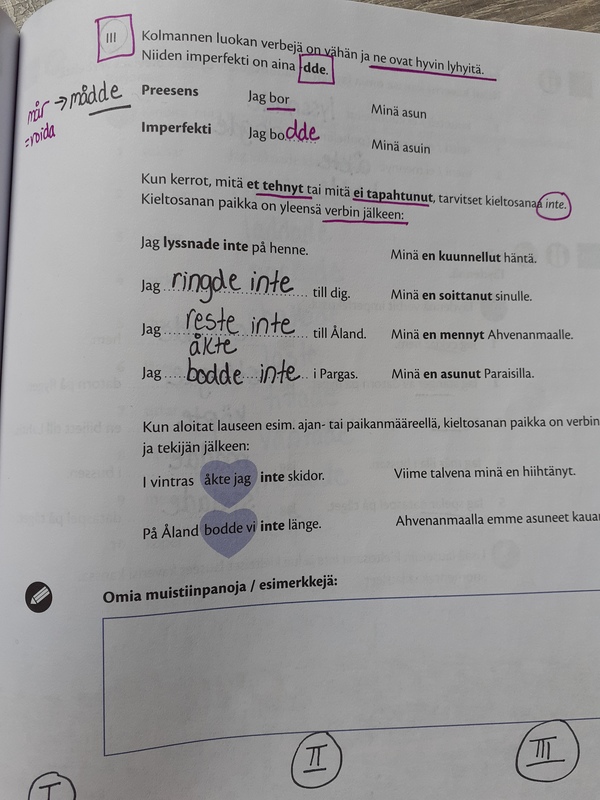 III
Kolmannen luokan verbejä on vähän ja ne ovat hyvin lyhyitä.
Niiden imperfekti on aina -dde.
mår → mådde
=voida
Preesens Jag bor Minä asun
Imperfekti Jag bodde Minä asuin
Kun kerrot, mitä et tehnyt tai mitä ei tapahtunut, tarvitset kieltosanaa inte.
Kieltosanan paikka on yleensä verbin jälkeen:
Jag lyssnade inte på henne. Minä en kuunnellut häntä.
Jag ringde inte till dig. Minä en soittanut sinulle.
Jag reste inte till Åland. Minä en mennyt Ahvenanmaalle.
åkte
Jag bodde inte i Pargas. Minä en asunut Paraisilla.
Kun aloitat lauseen esim. ajan- tai paikanmääreellä, kieltosanan paikka on verbin
ja tekijän jälkeen:
I vintras åkte jag inte skidor. Viime talvena minä en hiihtänyt.
På Åland bodde vi inte länge. Ahvenanmaalla emme asuneet kauan
Omia muistiinpanoja / esimerkkejä:
I II III